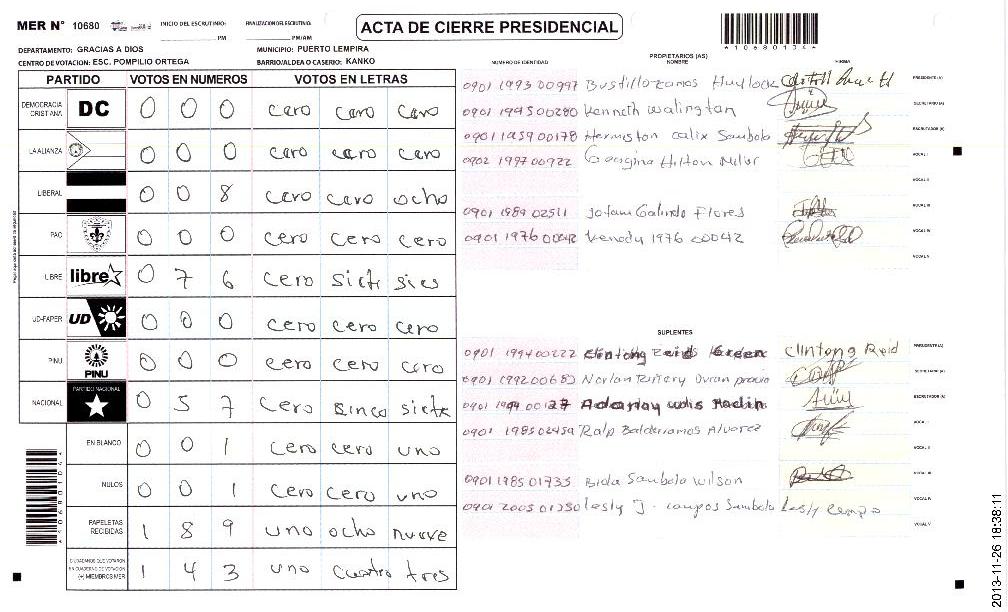 MER N° 10680 INICIO DEL ESCRUTINIO: PM FINALIZACION DEL ESCRUTINIO: PM/AM ACTA DE CIERRE PRESIDENCIAL
DEPARTAMENTO: GRACIAS A DIOS MUNICIPIO: PUERTO LEMPIRA
CENTRO DE VOTACION: ESC. POMPILIO ORTEGA BARRIO/ALDEA O CASERIO: KANKO
*10680104*
PARTIDO VOTOS EN NUMEROS VOTOS EN LETRAS
DEMOCRACIA CRISTIANA DC 0 0 0 cero cero cero
LA ALIANZA 0 0 0 cero cero cero
LIBERAL 0 0 8 cero cero ocho
PAC 0 0 0 cero cero cero
LIBRE libre 0 7 6 cero siete sies
UD-FAPER UD 0 0 0 cero cero cero
PINU PINU 0 0 0 cero cero cero
NACIONAL PARTIDO NACIONAL 0 5 7 cero sinco siete
EN BLANCO 0 0 1 cero cero uno
NULOS 0 0 1 cero cero uno
PAPELETAS RECIBIDAS 1 8 9 uno ocho nueve
CIUDADANOS QUE VOTARON EN CUADERNO DE VOTACION (+) MIEMBROS MER 1 4 3 uno cuatro tres
*10680104*
PROPIETARIOS (AS)
NUMERO DE IDENTIDAD NOMBRE FIRMA
0901 1993 00997 PRESIDENTE (A)
0901 1945 00280 Kenneth Walington SECRETARIO (A)
0901 1959 00178 Hermiston Calix Sambola ESCRUTADOR (A)
0902 1997 00922 Georgina Hilton VOCAL I
VOCAL II
0901 1989 02511 Jotam Galindo Flores VOCAL III
0901 1976 00042 Kenedy 1976 00042 VOCAL IV
VOCAL V
SUPLENTES
0901 1994 00222 Clintong Reid PRESIDENTE (A)
0901 1992 00683 SECRETARIO (A)
0901 ESCRUTADOR (A)
0901 1985 02459 Ralp Balderramos Alvarez VOCAL I
VOCAL II
0901 1985 01733 Bida Sambola Wilson VOCAL III
0901 2005 01350 Lesly J. campos Sambola Lesly Campo VOCAL IV
VOCAL V
2013-11-26 18:38:11